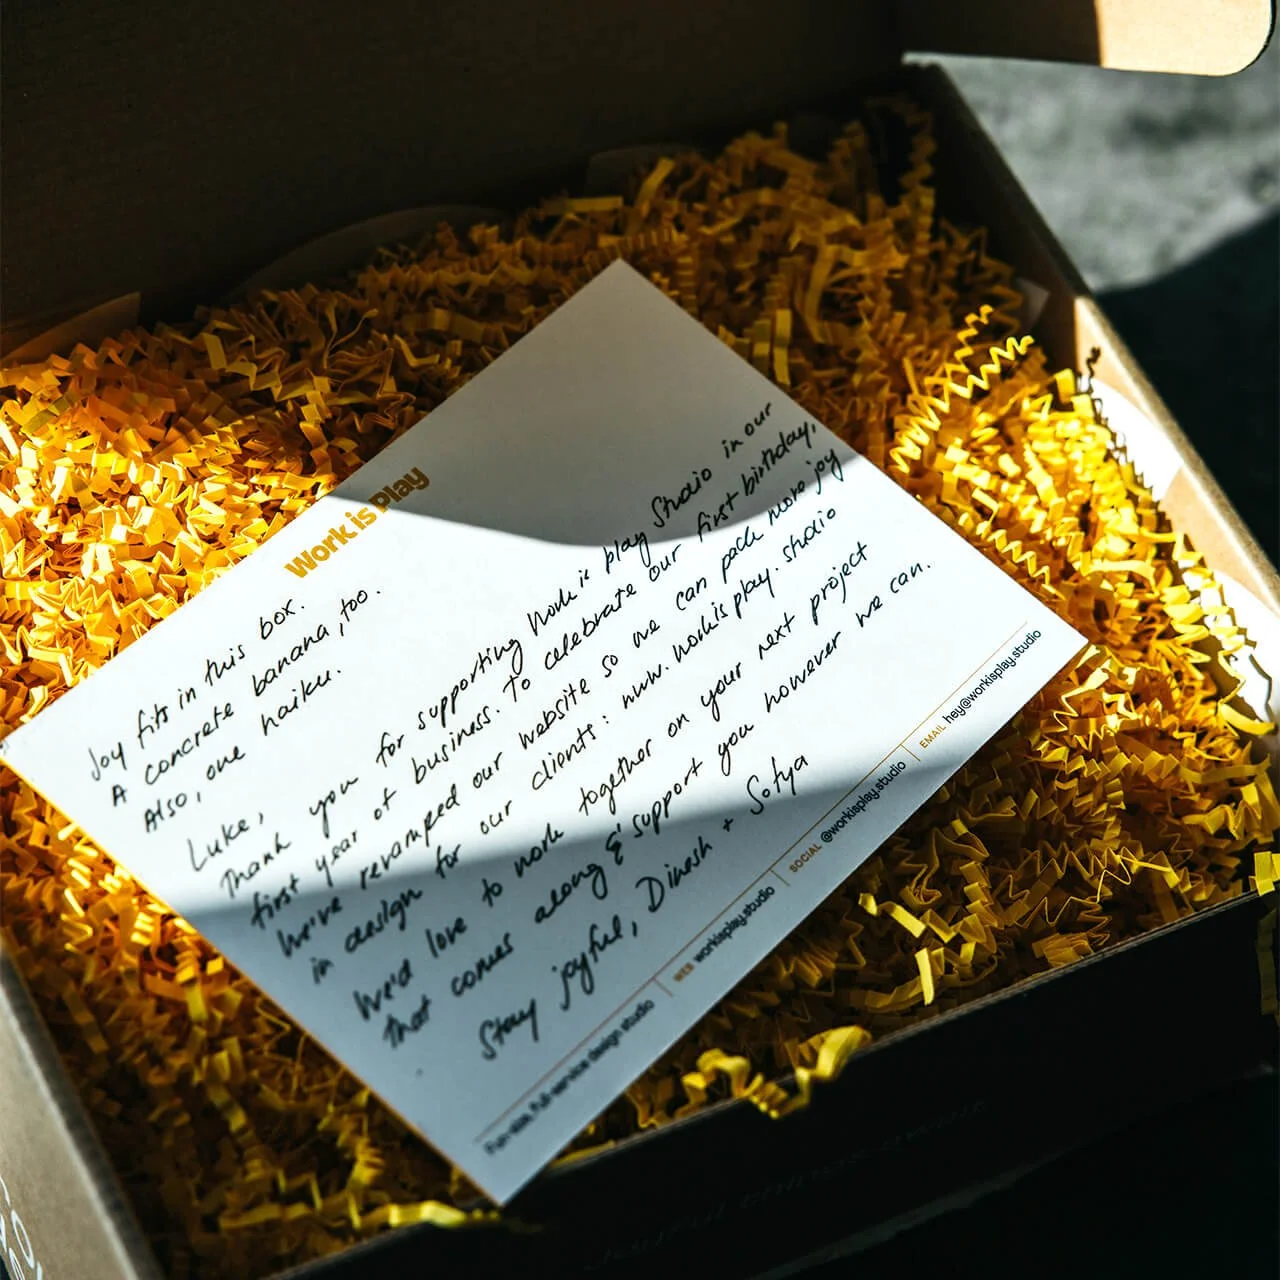 Work is Play
Joy fits in this box.
A concrete banana, too.
Also, one haiku.
Luke,
Thank you for supporting Work is Play Studio in our
first year of business. To celebrate our first birthday,
We've revamped our website so we can pack more joy
in design for our clients: www.workisplay.studio
We'd love to work together on your next project
that comes along & support you however we can.
Stay joyful, Dinesh + Sofya
Fun-size, full-service design studio
WEB workisplay.studio
SOCIAL @workisplay.studio
EMAIL hey@workisplay.studio